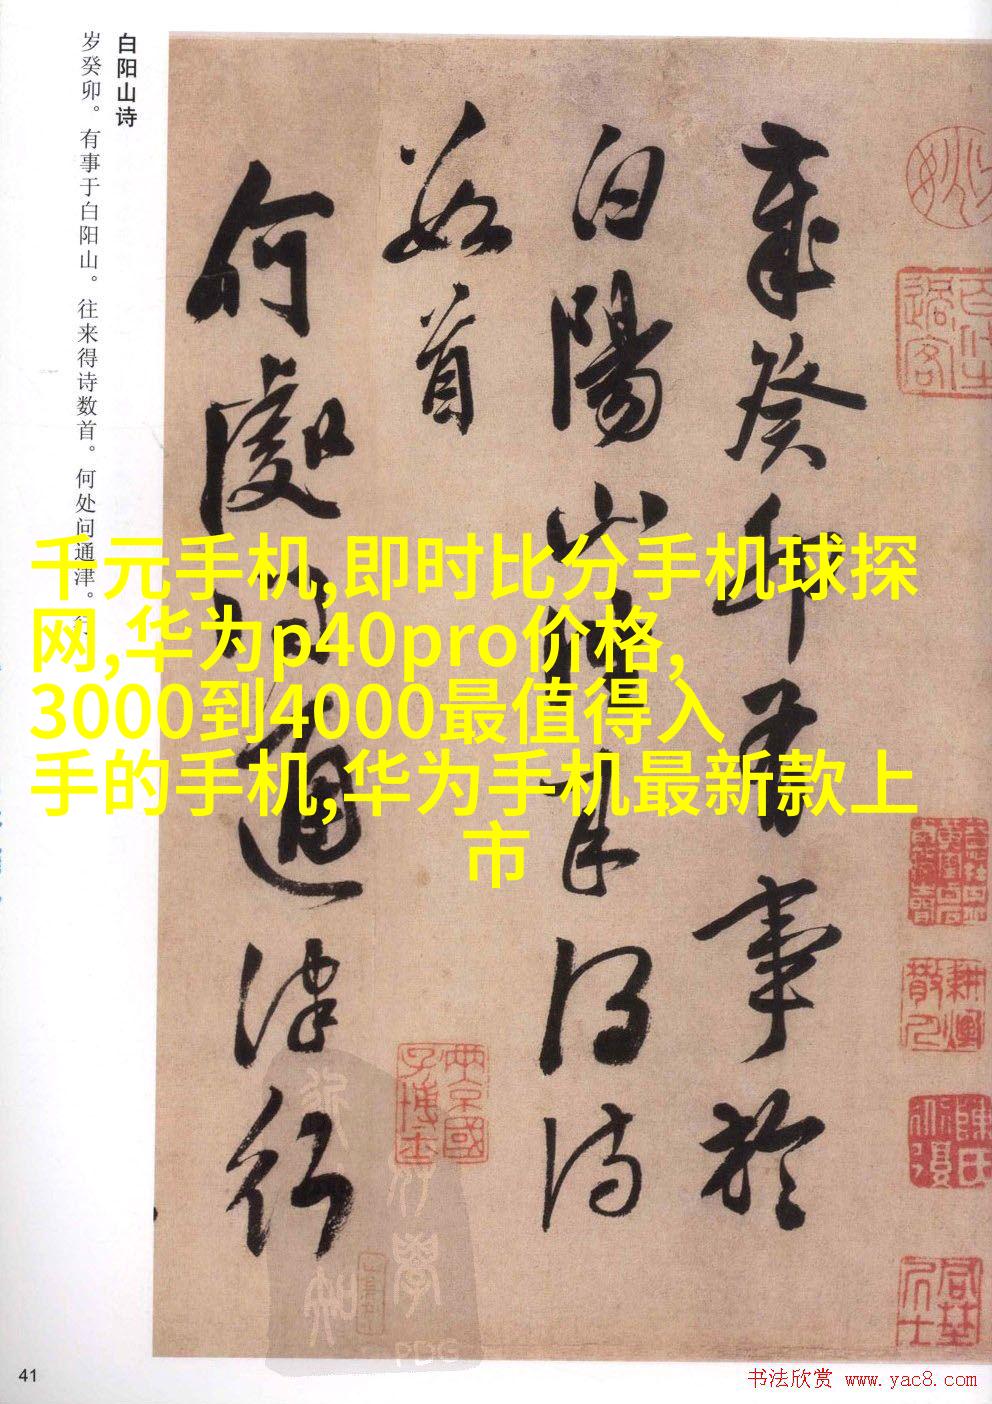 白阳山诗
岁癸卯。有事于白阳山。往来得诗数首。何处问通津。行
歲癸卯有事於
白陽山往來得詩
數首
何處問通津行
千元手机,即时比分手机球探
网,华为p40pro价格,
3000到4000最值得入
手的手机,华为手机最新款上
市
南京國子博士
耕煙散人
陳氏
PDG
41
书法欣赏 www.yac8.com